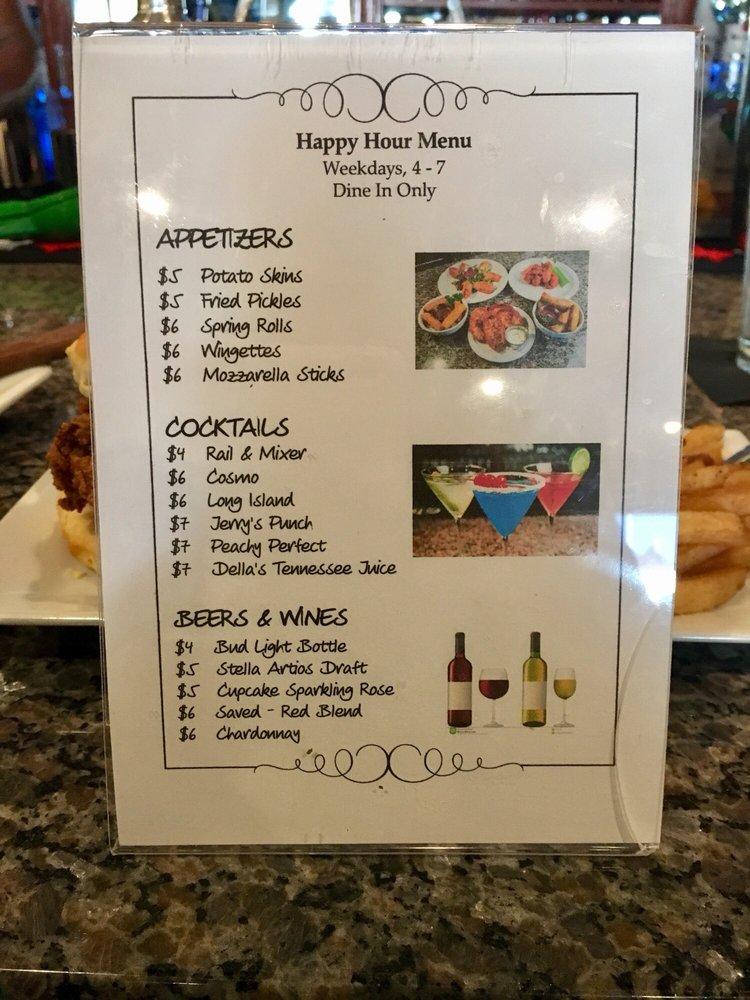 Happy Hour Menu
Weekdays, 4 - 7
Dine In Only
APPETIZERS
$5 Potato Skins
$5 Fried Pickles
$6 Spring Rolls
$6 Wingettes
$6 Mozzarella Sticks
COCKTAILS
$4 Rail & Mixer
$6 Cosmo
$6 Long Island
$7 Jerry's Punch
$7 Peachy Perfect
$7 Della's Tennessee Juice
BEERS & WINES
$4 Bud Light Bottle
$5 Stella Artios Draft
$5 Cupcake Sparkling Rose
$6 Saved - Red Blend
$6 Chardonnay